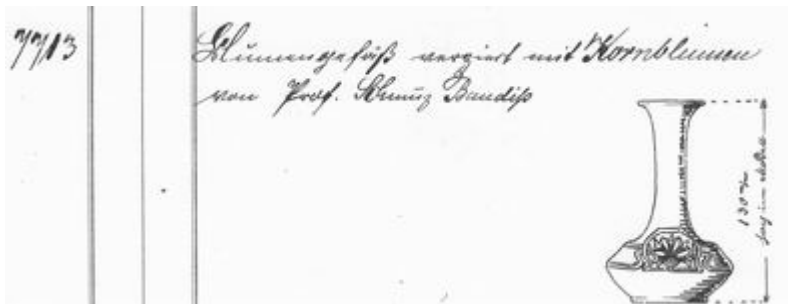 7713
Blumengefäß verziert mit Kornblumen
von Prof. Schmuz Baudiß
130 m/m